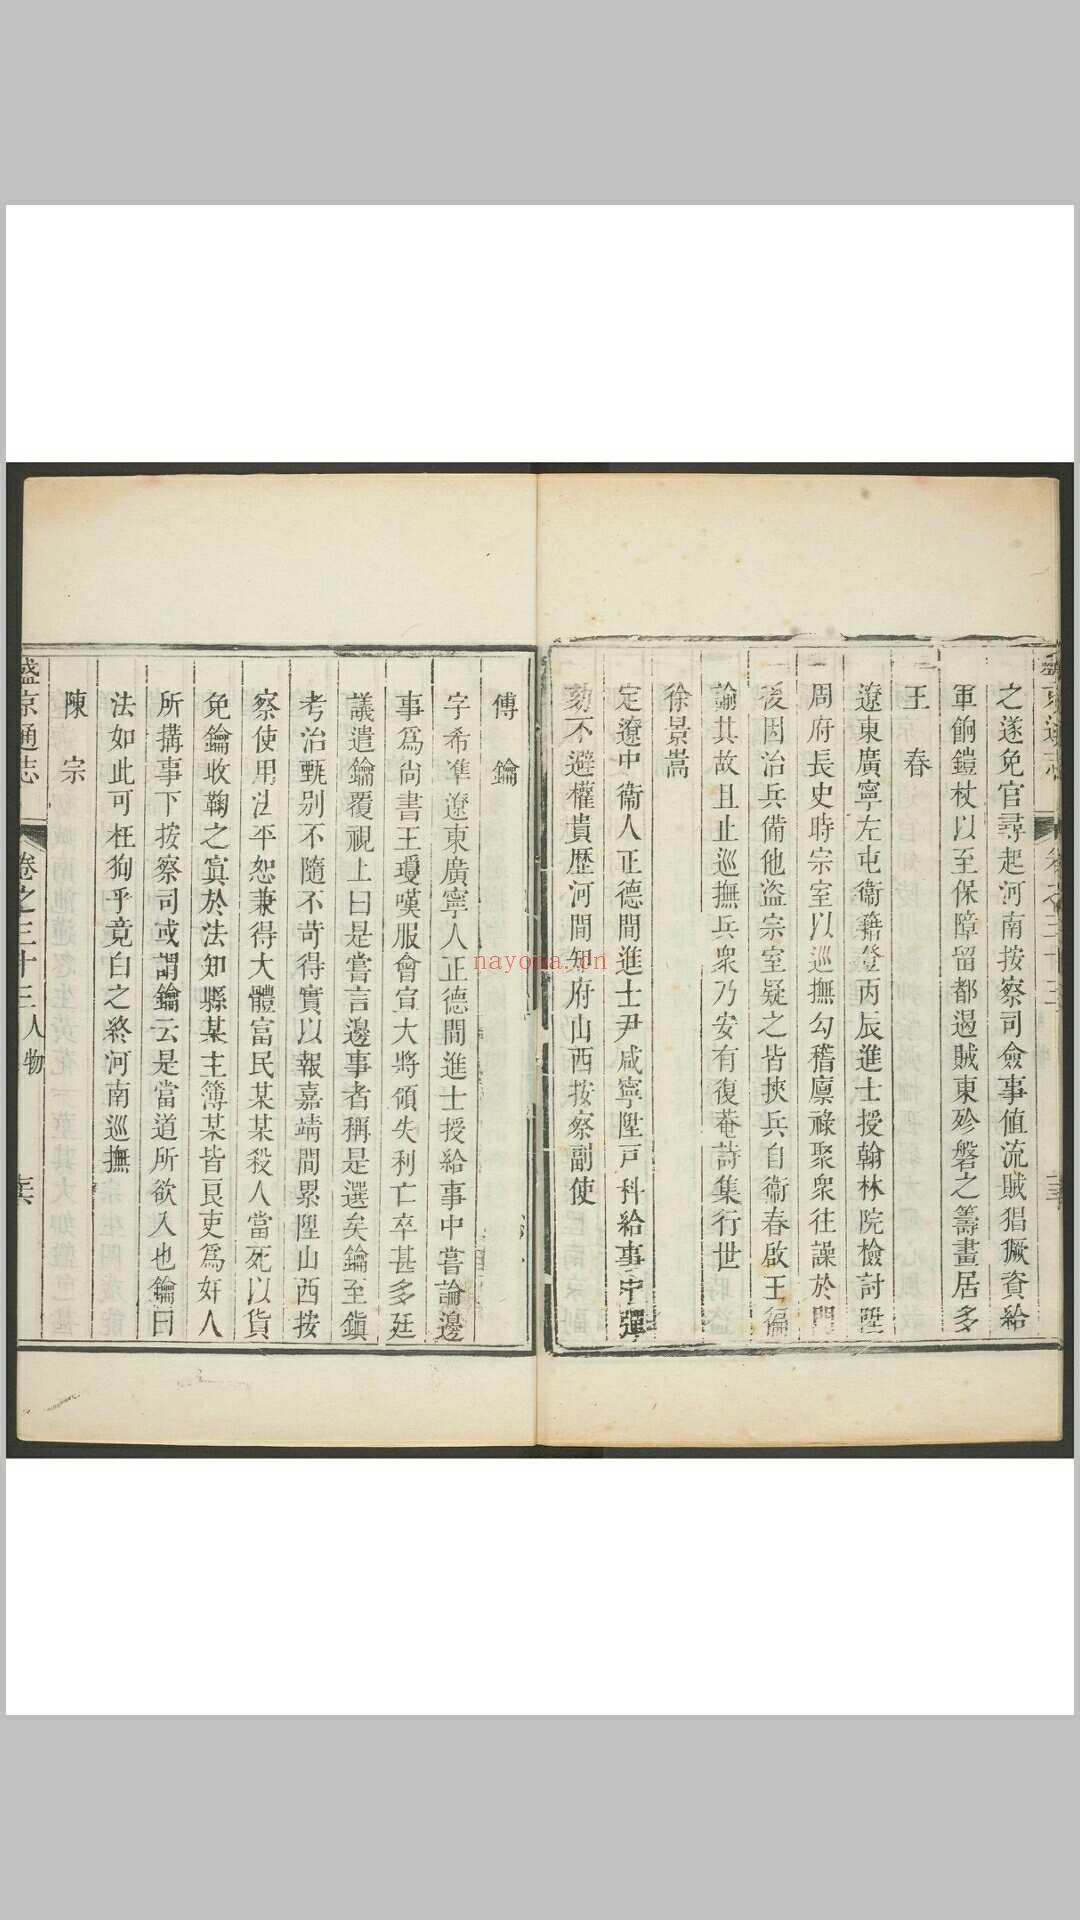 之遂免官尋起河南按察司僉事值流賊猖獗資給
軍餉鎧杖以至保障留都遏賊東殄磐之籌畫居多
王春
遼東廣寧左屯衞籍登丙辰進士授翰林院檢討陞
周府長史時宗室以巡撫勾稽廩祿聚衆往譟於門
後因治兵備他盜宗室疑之皆挾兵自衞春啟王徧
諭其故且止巡撫兵衆乃安有復菴詩集行世
徐景嵩
定遼中衞人正德間進士尹咸寧陞戸科給事中彈
劾不避權貴歷河間知府山西按察副使
傅鑰
字希準遼東廣寧人正德間進士授給事中嘗論邊
事爲尚書王瓊嘆服會宣大將領失利亡卒甚多廷
議遣鑰覆視上曰是嘗言邊事者稱是選矣鑰至鎮
考治甄别不隨不苛得實以報嘉靖間累陞山西按
察使用法平恕兼得大體富民某某殺人當死以貨
免鑰收鞠之寘於法知縣某主簿某皆良吏爲奸人
所搆事下按察司或謂鑰云是當道所欲入也鑰曰
法如此可枉狥乎竟白之終河南巡撫
陳宗
盛京通志 卷之三十三人物
nayona.cn